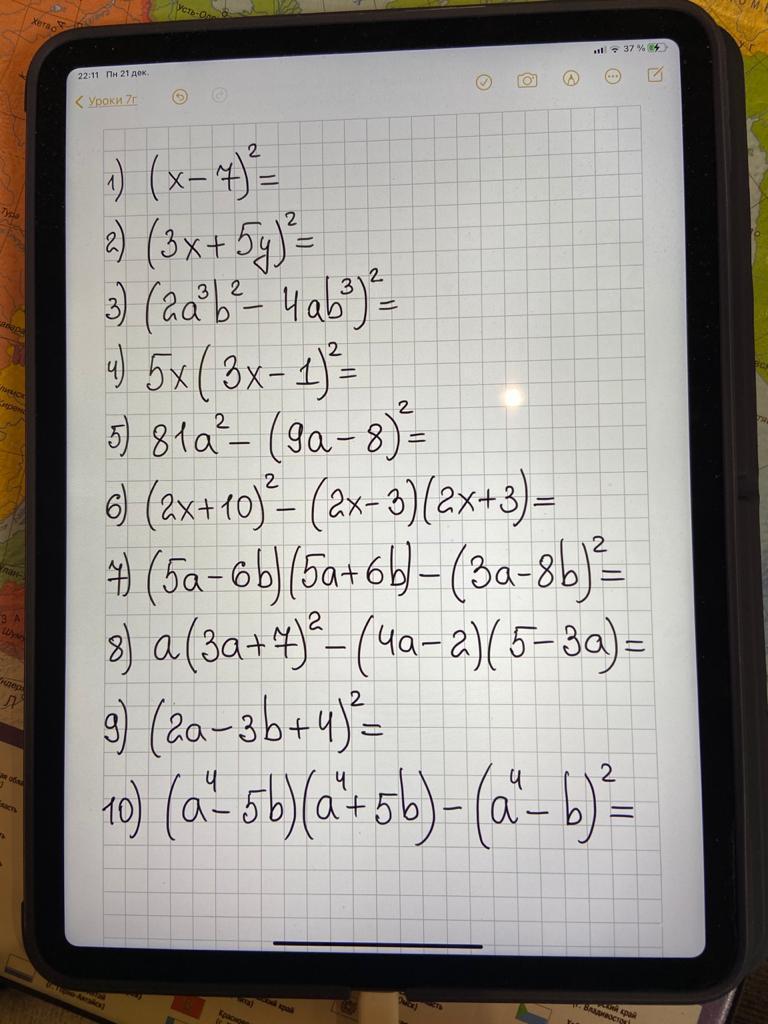 Усть-Ол
22:11 Пн 21 дек.
37 %
Уроки 7г
1) (x-7)²=
2) (3x+5y)²=
3) (2a³b²-4ab³)²=
4) 5x(3x-1)²=
5) 81a²-(9a-8)²=
6) (2x+10)²-(2x-3)(2x+3)=
7) (5a-6b)(5a+6b)-(3a-8b)²=
8) a(3a+7)²-(4a-2)(5-3a)=
9) (2a-3b+4)²=
10) (a⁴-5b)(a⁴+5b)-(a⁴-b)²=
(г. Горно-Алтайск)
(г. Владивосток)